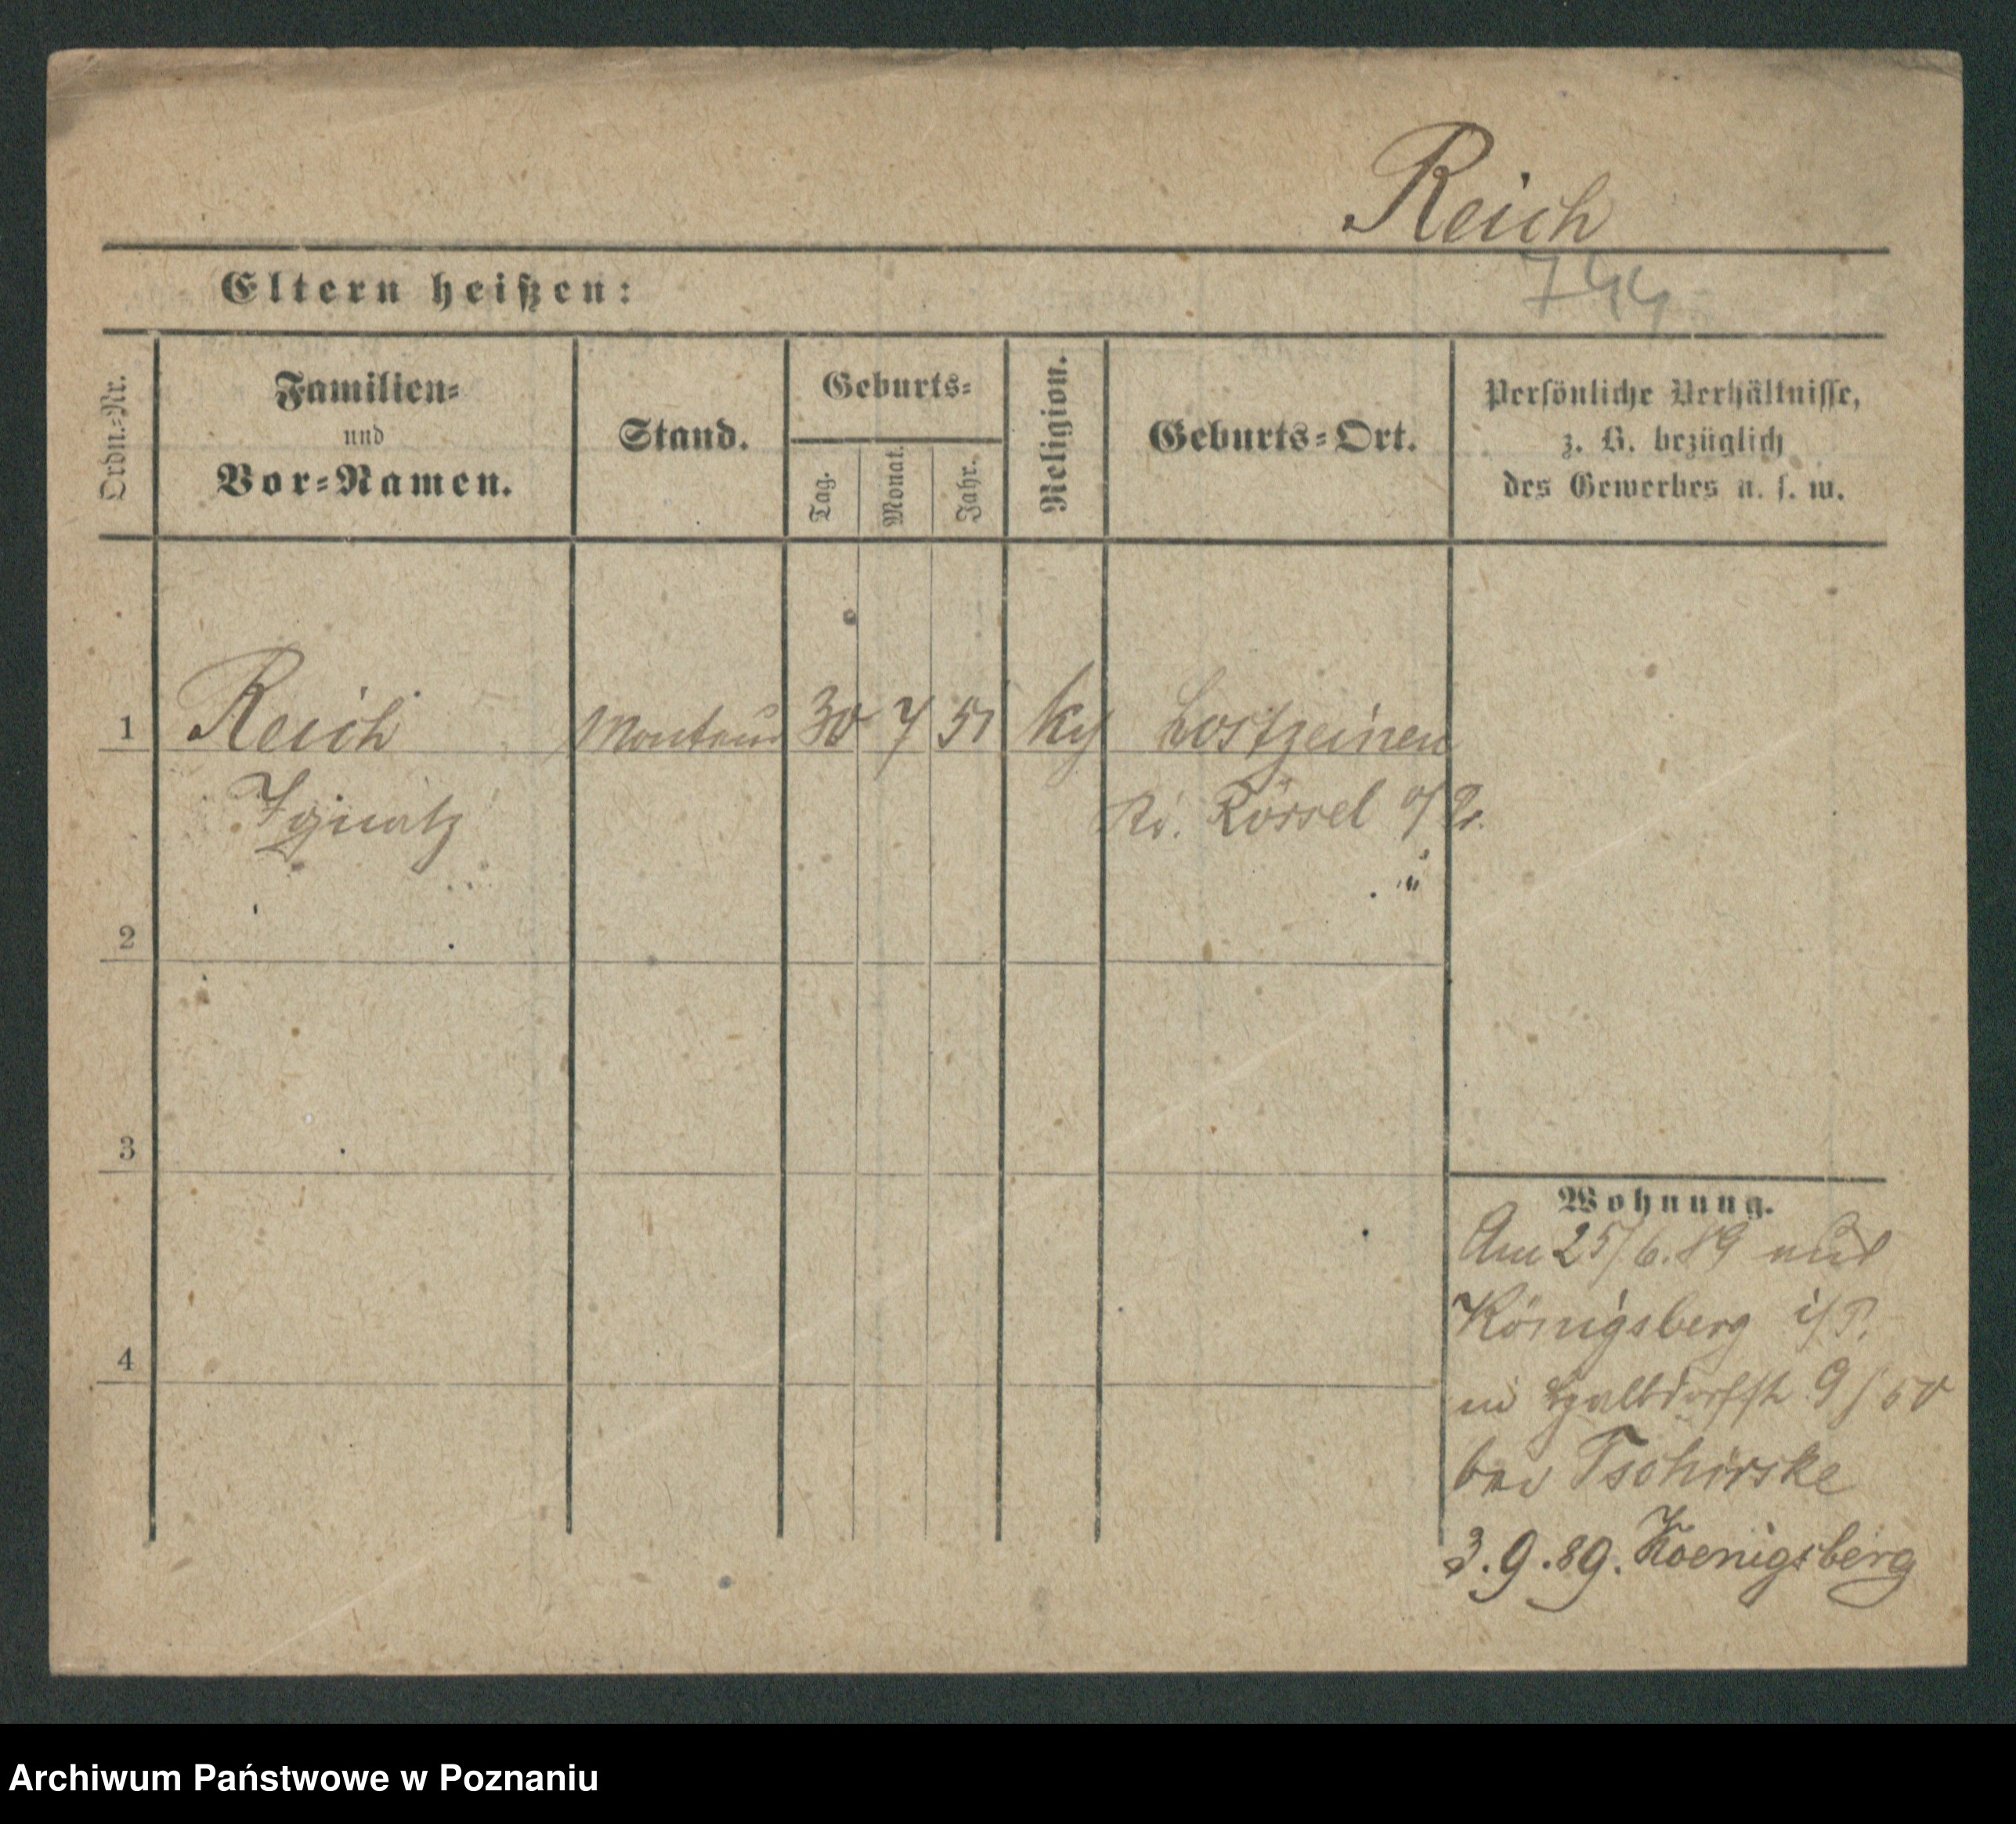 Reich
744
Eltern heißen:
Ordn.-Nr.
Familien-
und
Vor-Namen.
Stand.
Geburts-
Tag.
Monat.
Jahr.
Religion.
Geburts-Ort.
Persönliche Verhältnisse,
z. B. bezüglich
des Gewerbes u. s. w.
1 Reich Monteur 30 7 51 Lostzeinen
Ignatz Kr. Rössel o/Pr.
2
3
4
Wohnung.
Am 25/6.89 aus
Königsberg i/P.
in 9/50
bei Tschirske
3.9.89. Koenigsberg
Archiwum Państwowe w Poznaniu